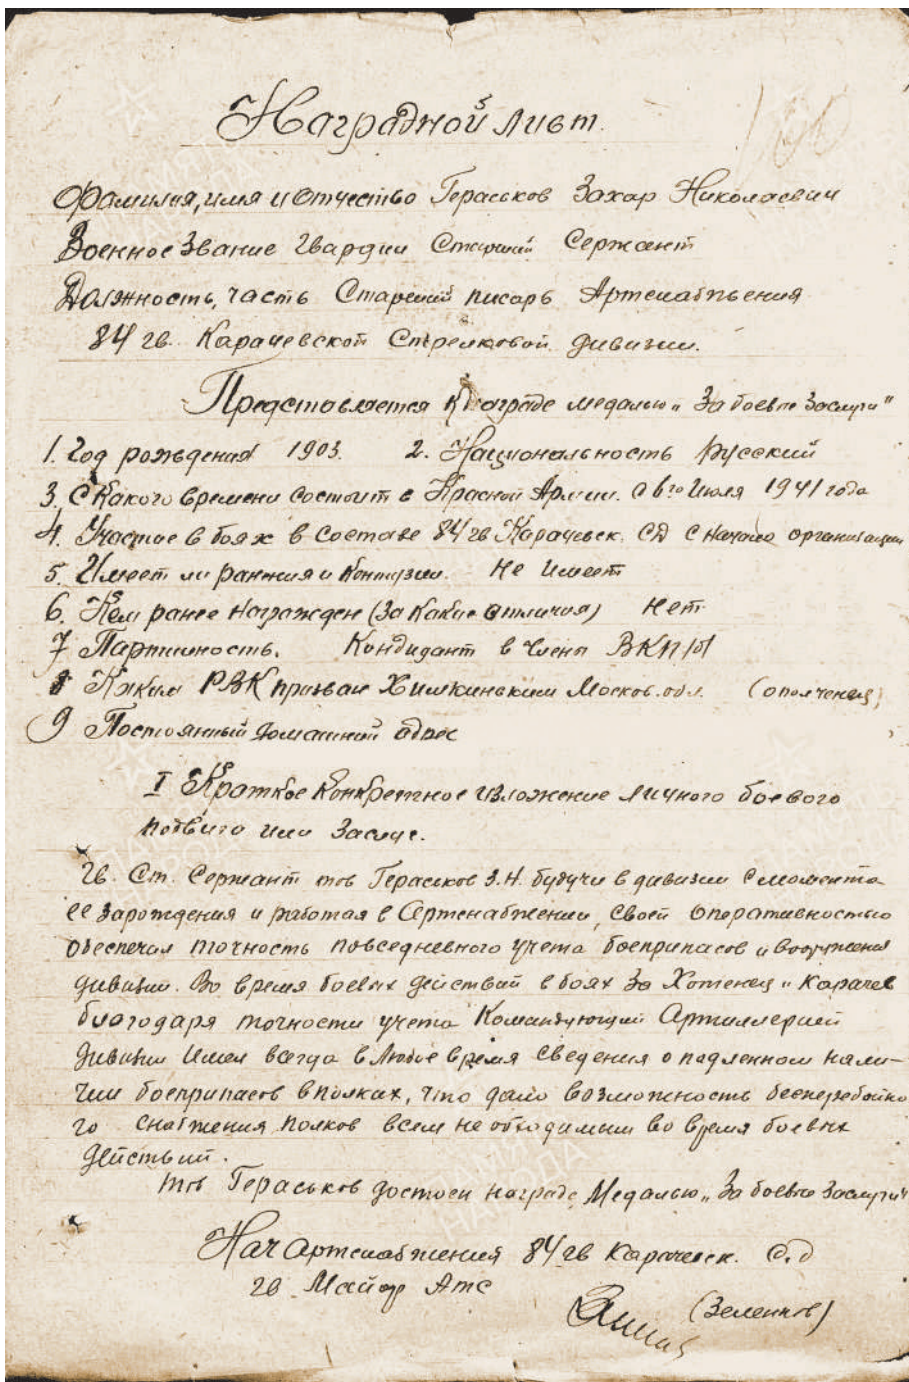 Наградной лист.
Фамилия, имя и Отчество Гераськов Захар Николаевич
Военное Звание Гвардии Старший Сержант
Должность, часть Старший писарь Артснабжения
84 гв. Карачевской Стрелковой дивизии.
Представляется к награде медалью „За боевые Заслуги"
1. Год рождения 1903. 2. Национальность Русский
3. С Какого времени состоит в Красной Армии. С 6го Июля 1941 года
4. Участие в боях в составе 84 гв Карачевск. СД с начала организации
5. Имеет ли ранения и контузии. Не имеет
6. Кем ранее награжден (За какие отличия) Нет
7 Партийность. Кандидат в члены ВКП/б/
8 Каким РВК призван Химкинским Москов. обл. (ополчение)
9 Постоянный домашний адрес
I Краткое Конкретное изложение личного боевого
подвига или Заслуг.
Гв. Ст. Сержант тов Гераськов З.Н. будучи в дивизии с момента
ее зарождения и работая в Артснабжении, своей оперативностью
обеспечил точность повседневного учета боеприпасов и вооружения
дивизии. Во время боевых действий в боях за Хотенец и Карачев
благодаря точности учета Командующий Артиллерией
дивизии имел всегда в любое время сведения о подленном нали-
чии боеприпасов в полках, что дало возможность бесперебойно
го снабжения полков всем необходимым во время боевых
действий.
тов Гераськов достоен награде Медалью „За боевые Заслуги"
Нач Артснабжения 84 гв Карачевск. с.д
гв Майор Атс
(Зеленков)